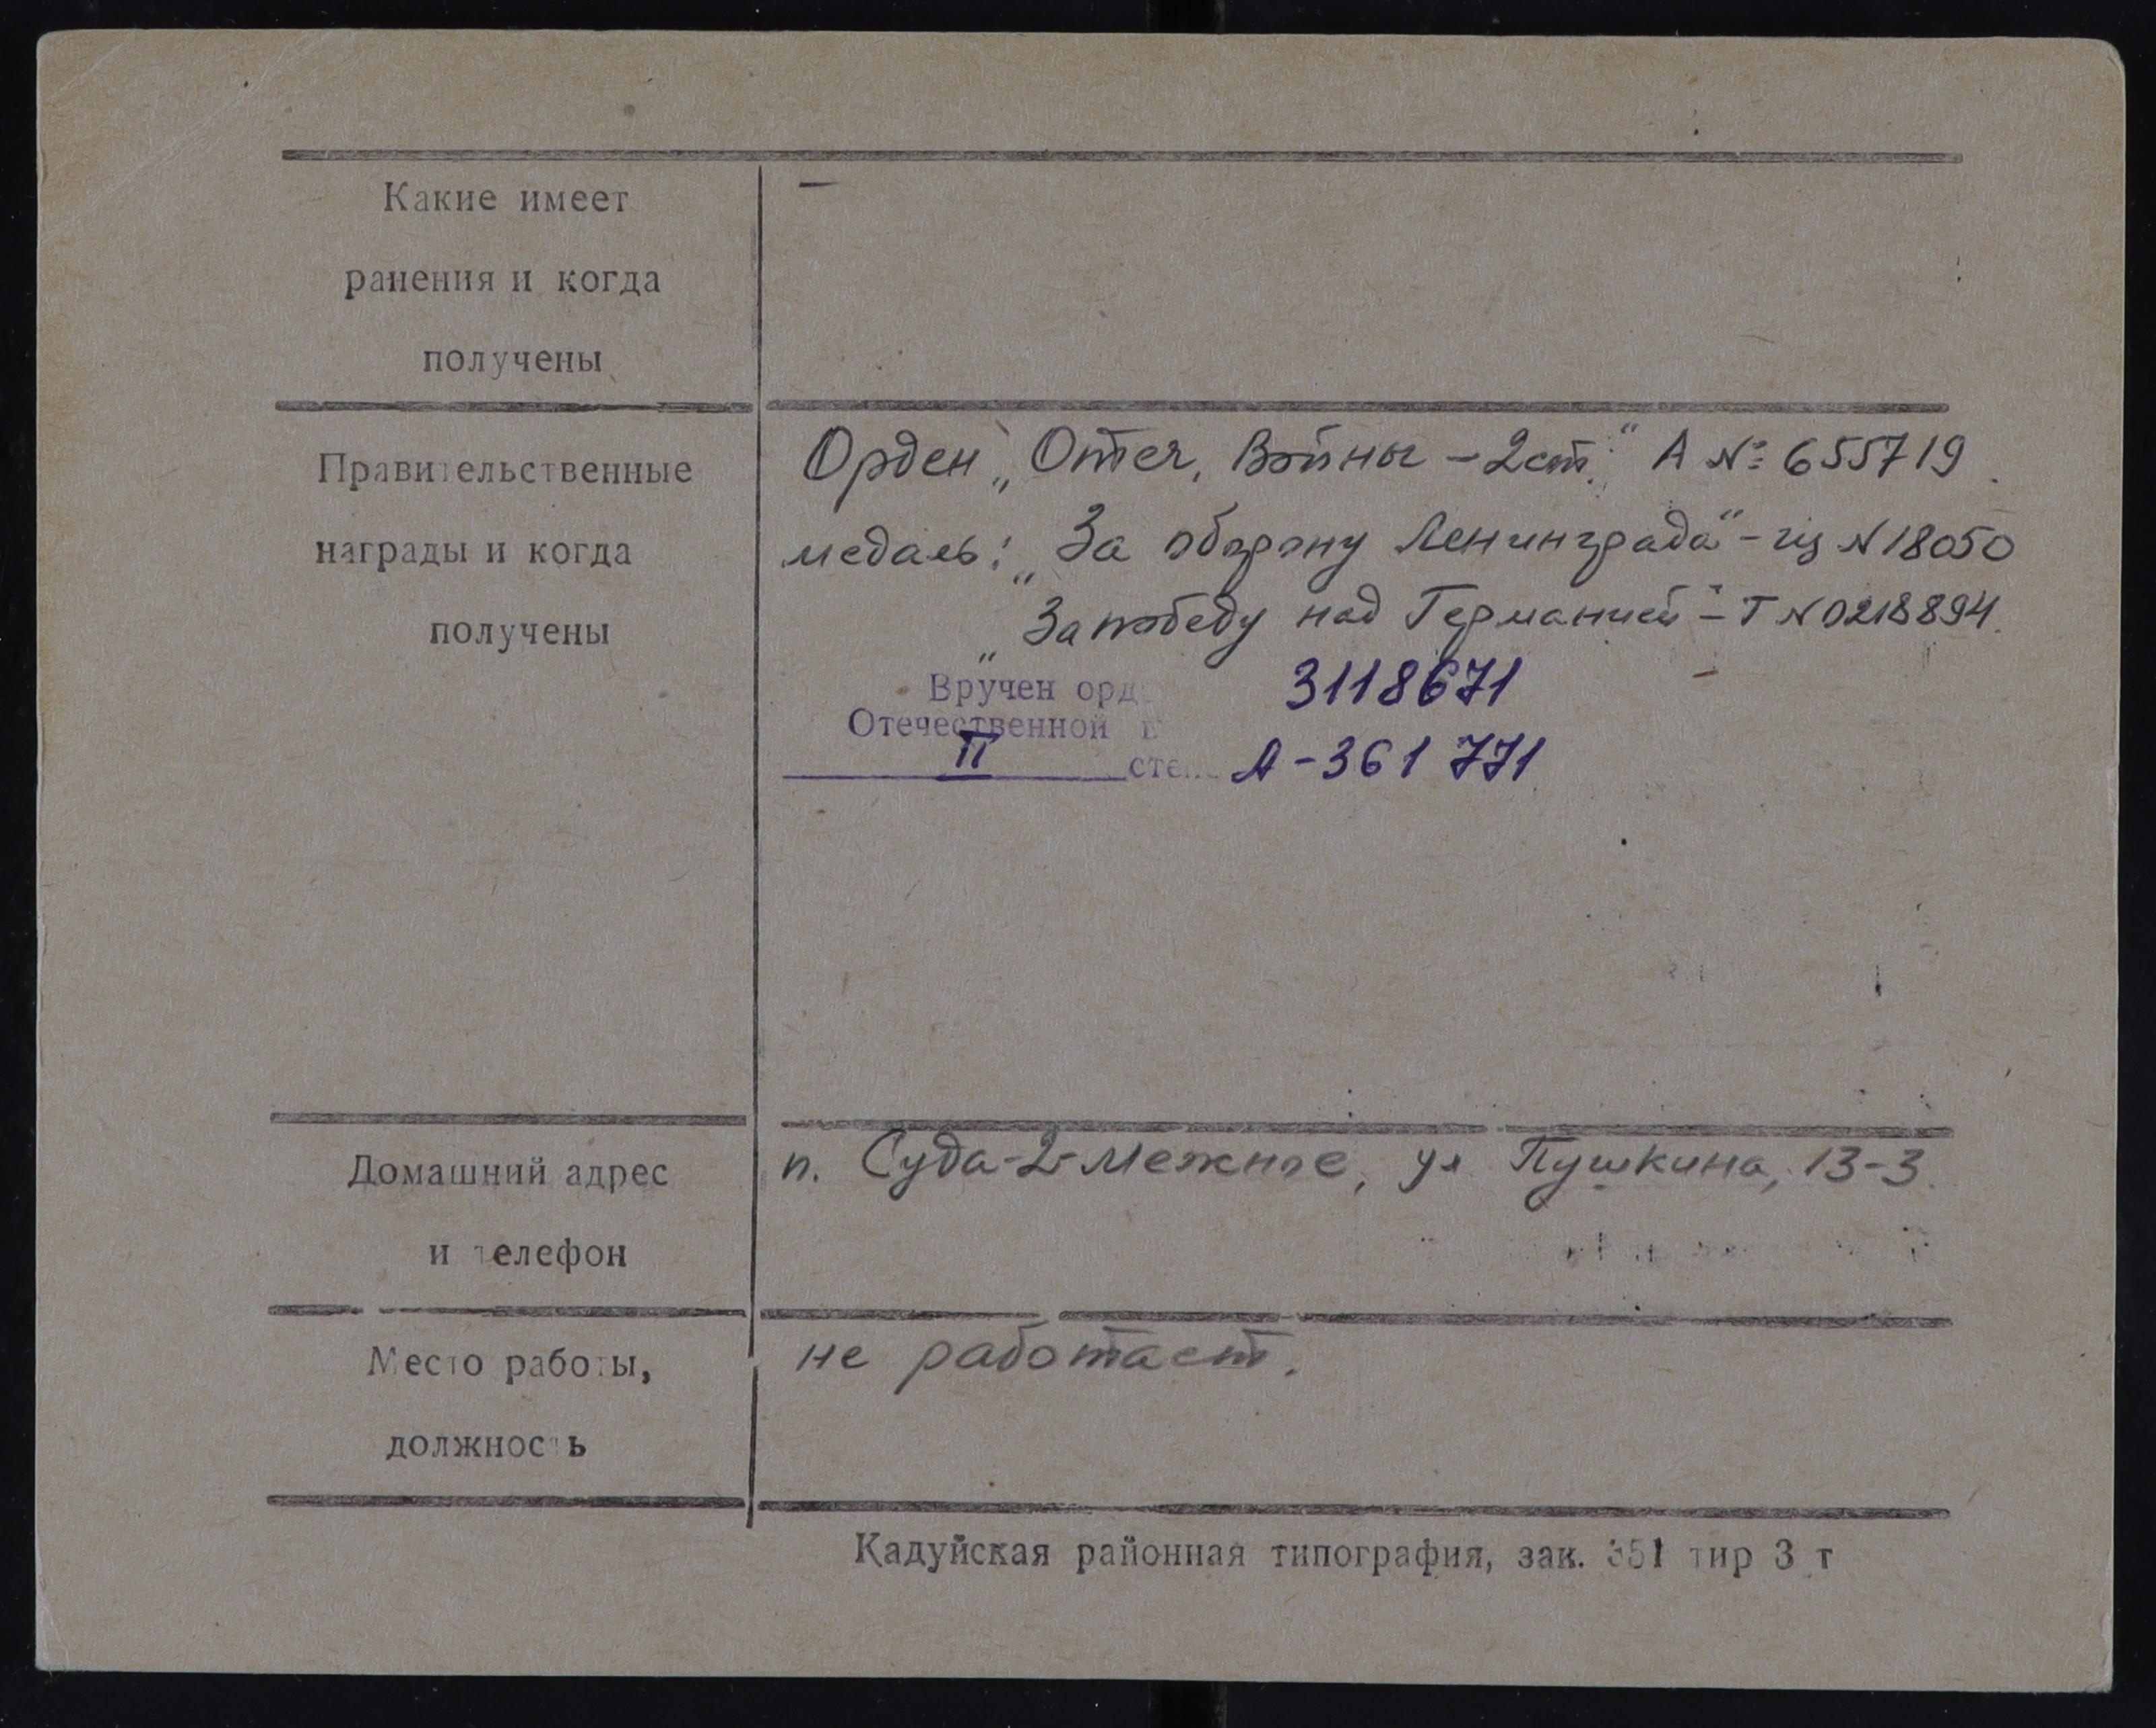 Какие имеет
ранения и когда
получены
—
Правительственные
награды и когда
получены
Орден „Отеч. Войны – 2 ст.“ А № 655719
медаль: „За оборону Ленинграда“ – N 18050
„За победу над Германией“ – Т N 0218894
Вручен орд 3118671
Отечественной в
II степ А-361 771
Домашний адрес
и телефон
п. Суда-2-Межное, ул Пушкина, 13-3.
Место работы,
должность
не работает.
Кадуйская районная типография, зак. 351 тир 3 т